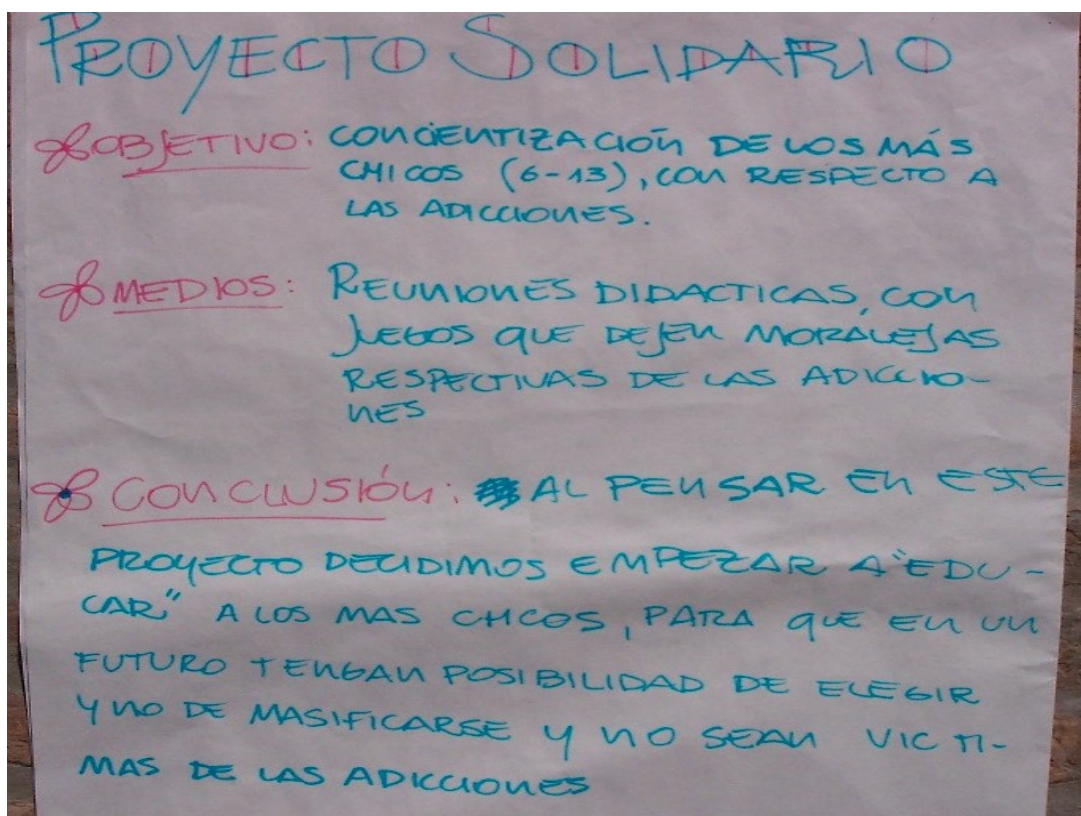 PROYECTO SOLIDARIO
OBJETIVO: CONCIENTIZACIÓN DE LOS MÁS
CHICOS (6-13), CON RESPECTO A
LAS ADICCIONES.
MEDIOS: REUNIONES DIDACTICAS, CON
JUEGOS QUE DEJEN MORALEJAS
RESPECTIVAS DE LAS ADICCIO-
NES
CONCLUSIÓN: AL PENSAR EN ESTE
PROYECTO DECIDIMOS EMPEZAR A "EDU-
CAR" A LOS MAS CHICOS, PARA QUE EN UN
FUTURO TENGAN POSIBILIDAD DE ELEGIR
Y NO DE MASIFICARSE Y NO SEAN VICTI-
MAS DE LAS ADICCIONES